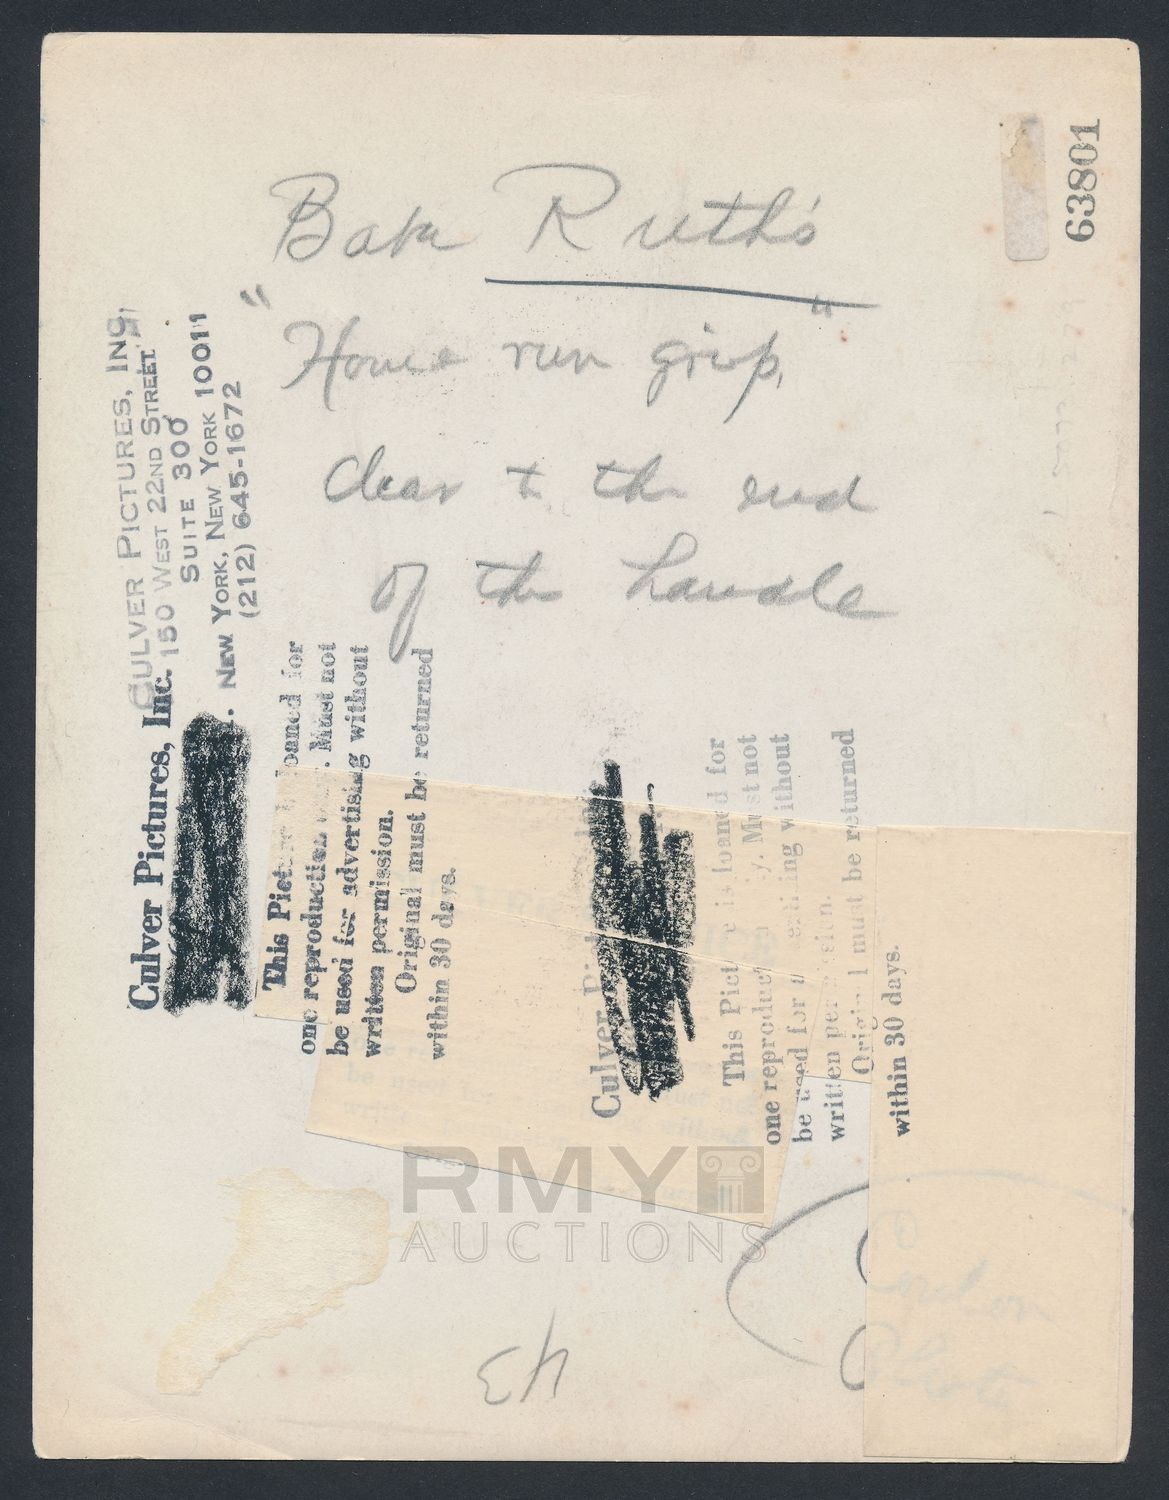 Babe Ruth's
"Home run grip,"
clear to the end
of the handle
63801
CULVER PICTURES, INC.
150 WEST 22ND STREET
SUITE 300
NEW YORK, NEW YORK 10011
(212) 645-1672
Culver Pictures, Inc.
This Picture is loaned for
one reproduction only. Must not
be used for advertising without
written permission.
Original must be returned
within 30 days.
Culver Pictures
This Picture is loaned for
one reproduction only. Must not
be used for advertising without
written permission.
Original must be returned
within 30 days.
RMY
AUCTIONS
43